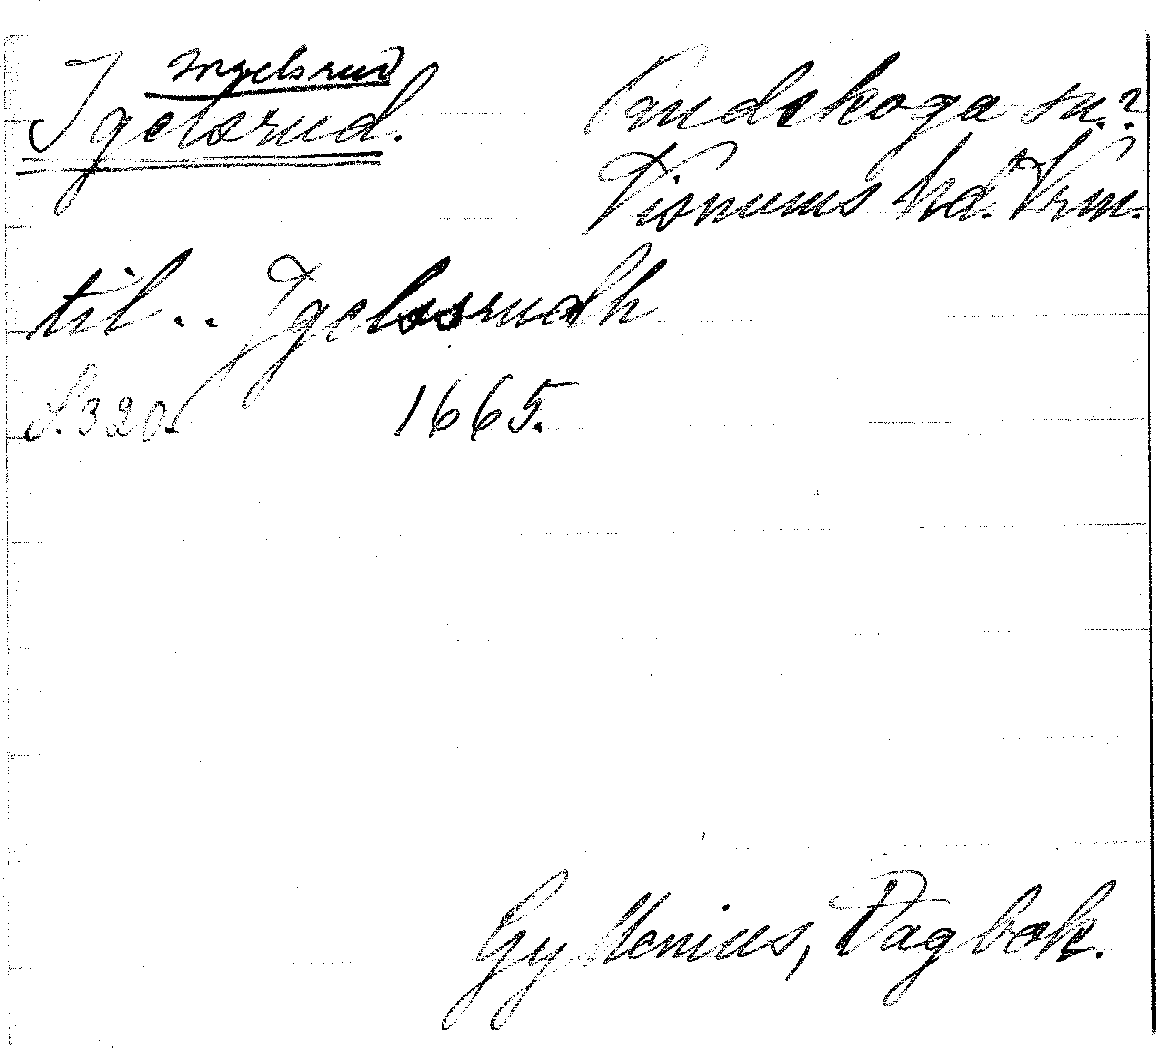 Ingelsrud
Igelsrud. Gudskoga sn?
Visnums hd. Vrm.
til .. Igelssrudh
S. 320. 1665.
Gyllenius, Dagbok.